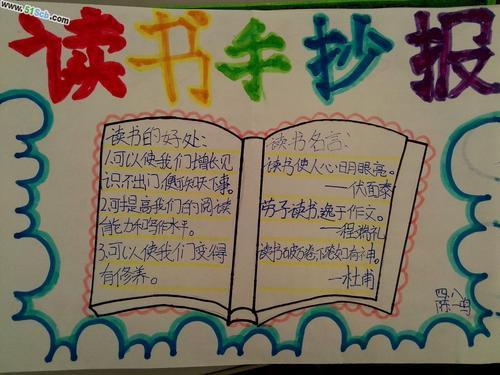 www.51Scb.com
读书手抄报
读书的好处:
1.可以使我们增长见
识,不出门,便可知天下事。
2.可提高我们的阅读
能力和写作水平。
3.可以使我们变得
有修养。
读书名言:
读书使人心明眼亮。
—伏面泰
劳于读书,逸于作文。
—程端礼
读书破万卷,下笔如有神。
—杜甫
四八